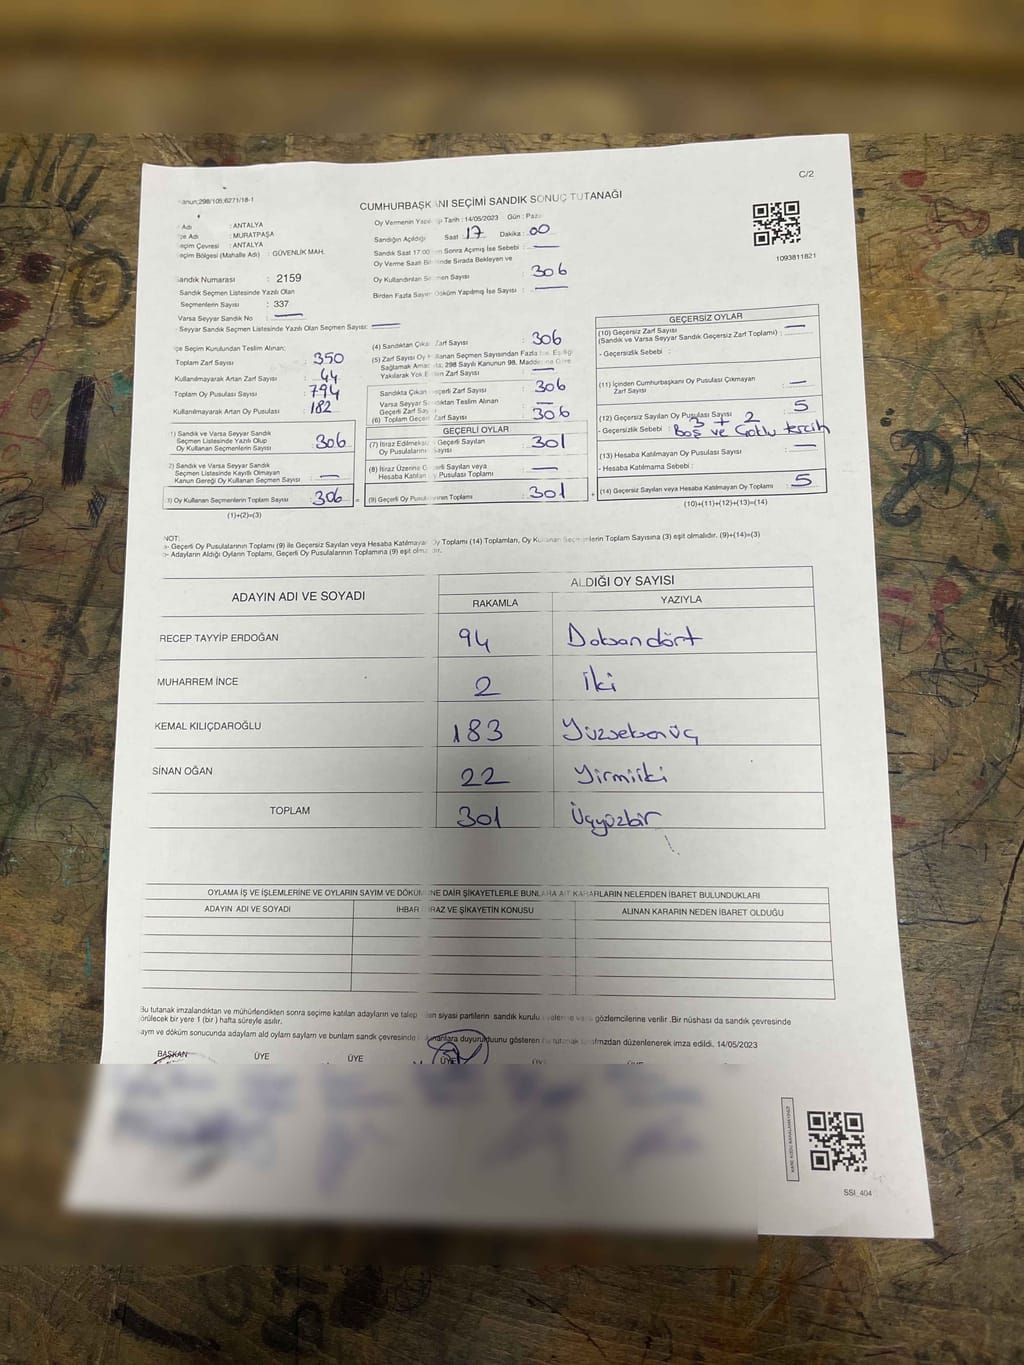 C/2
CUMHURBAŞKANI SEÇİMİ SANDIK SONUÇ TUTANAĞI
Adı : ANTALYA
Adı : MURATPAŞA
Seçim Çevresi : ANTALYA
Seçim Bölgesi (Mahalle Adı) : GÜVENLİK MAH.
Tarih : 14/05/2023 Gün :
Sandığın Açıldığı Saat : 17 Dakika : 00
Sandık Saat 17:00 Sonra Açımış İse Sebebi : —
Oy Verme Saati Sırada Bekleyen ve
Oy Kullandırılan Sayısı : 306
Birden Fazla Sayım Döküm Yapılmış İse Sayısı : —
1093811821
Sandık Numarası : 2159
Sandık Seçmen Listesinde Yazılı Olan
Seçmenlerin Sayısı : 337
Varsa Seyyar Sandık No : —
Seyyar Sandık Seçmen Listesinde Yazılı Olan Seçmen Sayısı: —
İlçe Seçim Kurulundan Teslim Alınan:
Toplam Zarf Sayısı : 350
Kullanılmayarak Artan Zarf Sayısı : 44
Toplam Oy Pusulası Sayısı : 794
Kullanılmayarak Artan Oy Pusulası : 182
1) Sandık ve Varsa Seyyar Sandık
Seçmen Listesinde Yazılı Olup
Oy Kullanan Seçmenlerin Sayısı : 306
2) Sandık ve Varsa Seyyar Sandık
Seçmen Listesinde Kayıtlı Olmayan
Kanun Gereği Oy Kullanan Seçmen Sayısı : —
3) Oy Kullanan Seçmenlerin Toplam Sayısı : 306
(1)+(2)=(3)
(4) Sandıktan Çıkan Zarf Sayısı : 306
(5) Zarf Sayısı Oy Kullanan Seçmen Sayısından Fazla
298 Sayılı Kanunun 98.
Yakılarak Yok Zarf Sayısı : —
Sandıkta Çıkan Geçerli Zarf Sayısı : 306
Varsa Seyyar Sandıktan Teslim Alınan
Geçerli Zarf Sayısı : —
(6) Toplam Geçerli Zarf Sayısı : 306
GEÇERLİ OYLAR
(7) İtiraz Edilmeksizin Geçerli Sayılan
Oy Pusulalarının Sayısı : 301
(8) İtiraz Üzerine Geçerli Sayılan veya
Hesaba Katılan Oy Pusulası Toplamı : —
(9) Geçerli Oy Pusulalarının Toplamı : 301
GEÇERSİZ OYLAR
(10) Geçersiz Zarf Sayısı
(Sandık ve Varsa Seyyar Sandık Geçersiz Zarf Toplamı) : —
- Geçersizlik Sebebi :
(11) İçinden Cumhurbaşkanı Oy Pusulası Çıkmayan
Zarf Sayısı : —
(12) Geçersiz Sayılan Oy Pusulası Sayısı : 5
3 + 2
- Geçersizlik Sebebi : Boş ve Çoklu tercih
(13) Hesaba Katılmayan Oy Pusulası Sayısı : —
- Hesaba Katılmama Sebebi :
(14) Geçersiz Sayılan veya Hesaba Katılmayan Oy Toplamı : 5
(10)+(11)+(12)+(13)=(14)
NOT:
a- Geçerli Oy Pusulalarının Toplamı (9) ile Geçersiz Sayılan veya Hesaba Katılmayan Oy Toplamı (14) Toplamları, Oy Kullanan Seçmenlerin Toplam Sayısına (3) eşit olmalıdır. (9)+(14)=(3)
b- Adayların Aldığı Oyların Toplamı, Geçerli Oy Pusulalarının Toplamına (9) eşit olmalıdır.
ADAYIN ADI VE SOYADI
ALDIĞI OY SAYISI
RAKAMLA YAZIYLA
RECEP TAYYİP ERDOĞAN 94 Doksandört
MUHARREM İNCE 2 İki
KEMAL KILIÇDAROĞLU 183 Yüzseksenüç
SİNAN OĞAN 22 Yirmiiki
TOPLAM 301 Üçyüzbir
OYLAMA İŞ VE İŞLEMLERİNE VE OYLARIN SAYIM VE DÖKÜMÜNE DAİR ŞİKAYETLERLE BUNLARA AİT KARARLARIN NELERDEN İBARET BULUNDUKLARI
ADAYIN ADI VE SOYADI İHBAR İTİRAZ VE ŞİKAYETİN KONUSU ALINAN KARARIN NEDEN İBARET OLDUĞU
Bu tutanak imzalandıktan ve mühürlendikten sonra seçime katılan adayların ve talep eden siyasi partilerin sandık kurulu gözlemcilerine verilir .Bir nüshası da sandık çevresinde
görülecek bir yere 1 (bir ) hafta süreyle asılır.
sayım ve döküm sonucunda adayların sandık çevresinde duyurulduunu gösteren tutanak düzenlenerek imza edildi. 14/05/2023
BAŞKAN ÜYE ÜYE ÜYE
SSI_404